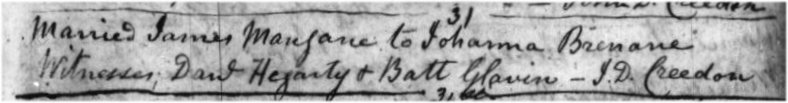 John D. Creedon
31
Married James Mangane to Johanna Brenane
Witnesses, Danl Hegarty & Batt Glavin – J. D. Creedon